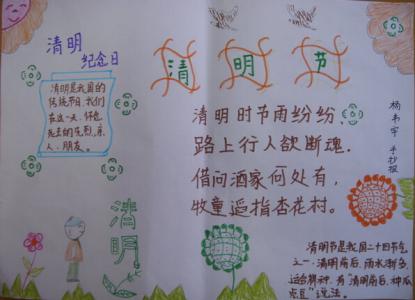 清明
纪念日
清明是我国的
传统节日,我们
在这一天,怀念
死去的先烈,亲
人、朋友。
清明节
清明时节雨纷纷,
路上行人欲断魂.
借问酒家何处有,
牧童遥指杏花村。
手抄报
清明
清明节是我国二十四节气
之一.清明前后,雨水渐多,
适合耕种.有“清明前后,种瓜
点豆”说法